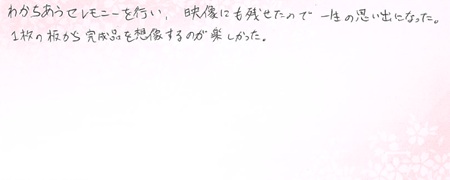 わかちあうセレモニーを行い、映像にも残せたので一生の思い出になった。
1枚の板から完成品を想像するのが楽しかった。